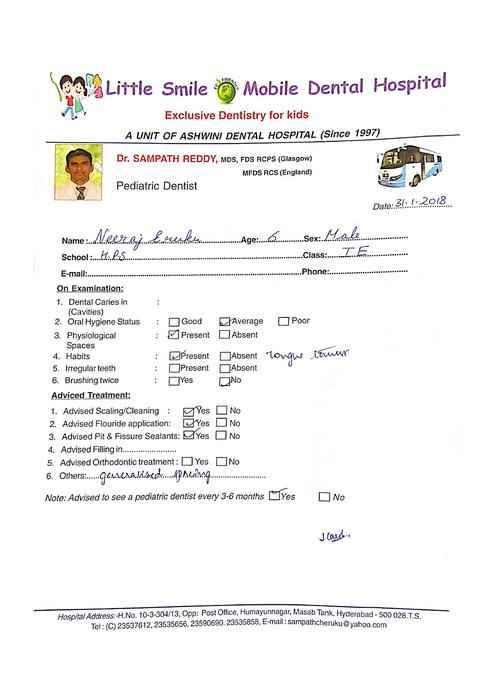 Little Smile Mobile Dental Hospital
Exclusive Dentistry for kids
A UNIT OF ASHWINI DENTAL HOSPITAL (Since 1997)
Dr. SAMPATH REDDY, MDS, FDS RCPS (Glasgow)
MFDS RCS (England)
Pediatric Dentist
Date: 31.1.2018
Name: Neeraj Age: 6 Sex: Male
School: H.P.S Class: I E
E-mail: Phone:
On Examination:
1. Dental Caries in :
(Cavities)
2. Oral Hygiene Status : Good Average Poor
3. Physiological : Present Absent
Spaces
4. Habits : Present Absent Tongue
5. Irregular teeth : Present Absent
6. Brushing twice : Yes No
Adviced Treatment:
1. Advised Scaling/Cleaning : Yes No
2. Advised Flouride application: Yes No
3. Advised Pit & Fissure Sealants: Yes No
4. Advised Filling in
5. Advised Orthodontic treatment : Yes No
6. Others: generalised spacing
Note: Advised to see a pediatric dentist every 3-6 months Yes No
Hospital Address:-H.No. 10-3-304/13, Opp: Post Office, Humayunnagar, Masab Tank, Hyderabad - 500 028.T.S.
Tel : (C) 23537612, 23535656, 23590690. 23535858, E-mail : sampathcheruku@yahoo.com